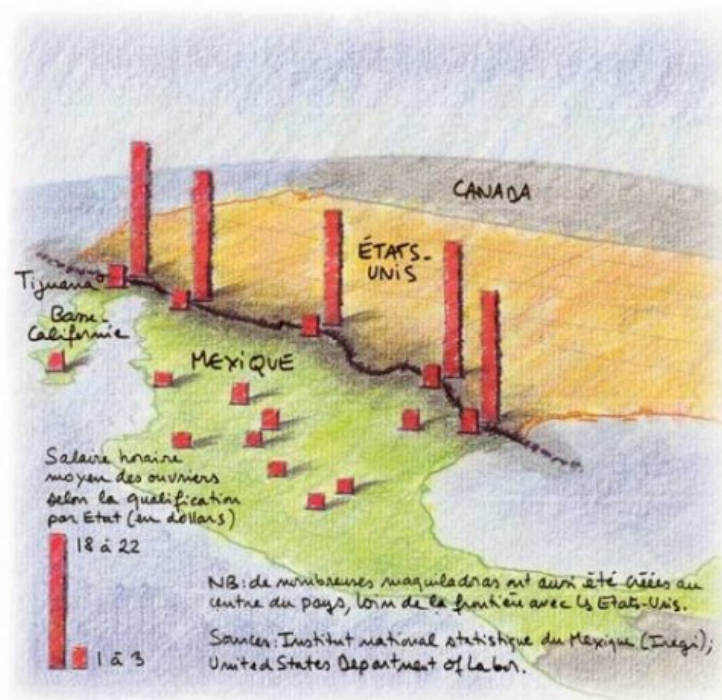 CANADA
ÉTATS-
UNIS
Tijuana
Basse-
Californie
MEXIQUE
Salaire horaire
moyen des ouvriers
selon la qualification
par Etat (en dollars)
18 à 22
1 à 3
NB: de nombreuses maquiladras ont aussi été créées au
centre du pays, loin de la frontière avec les Etats-Unis.
Sources: Institut national statistique du Mexique (Inegi);
United States Department of Labor.